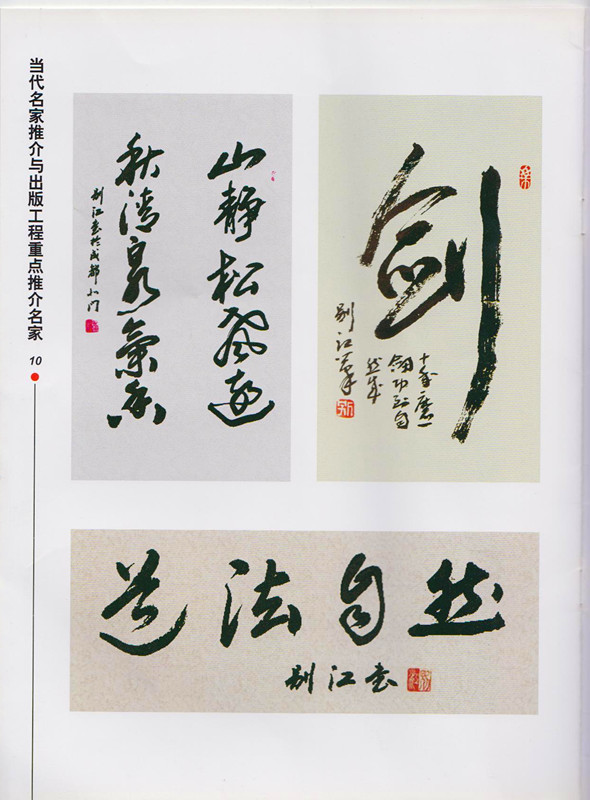 当代名家推介与出版工程重点推介名家
10
山静松风远
秋清泉气香
别江书于成都北门
剑
十年磨一
剑功到自
然成
别江
道法自然
别江书